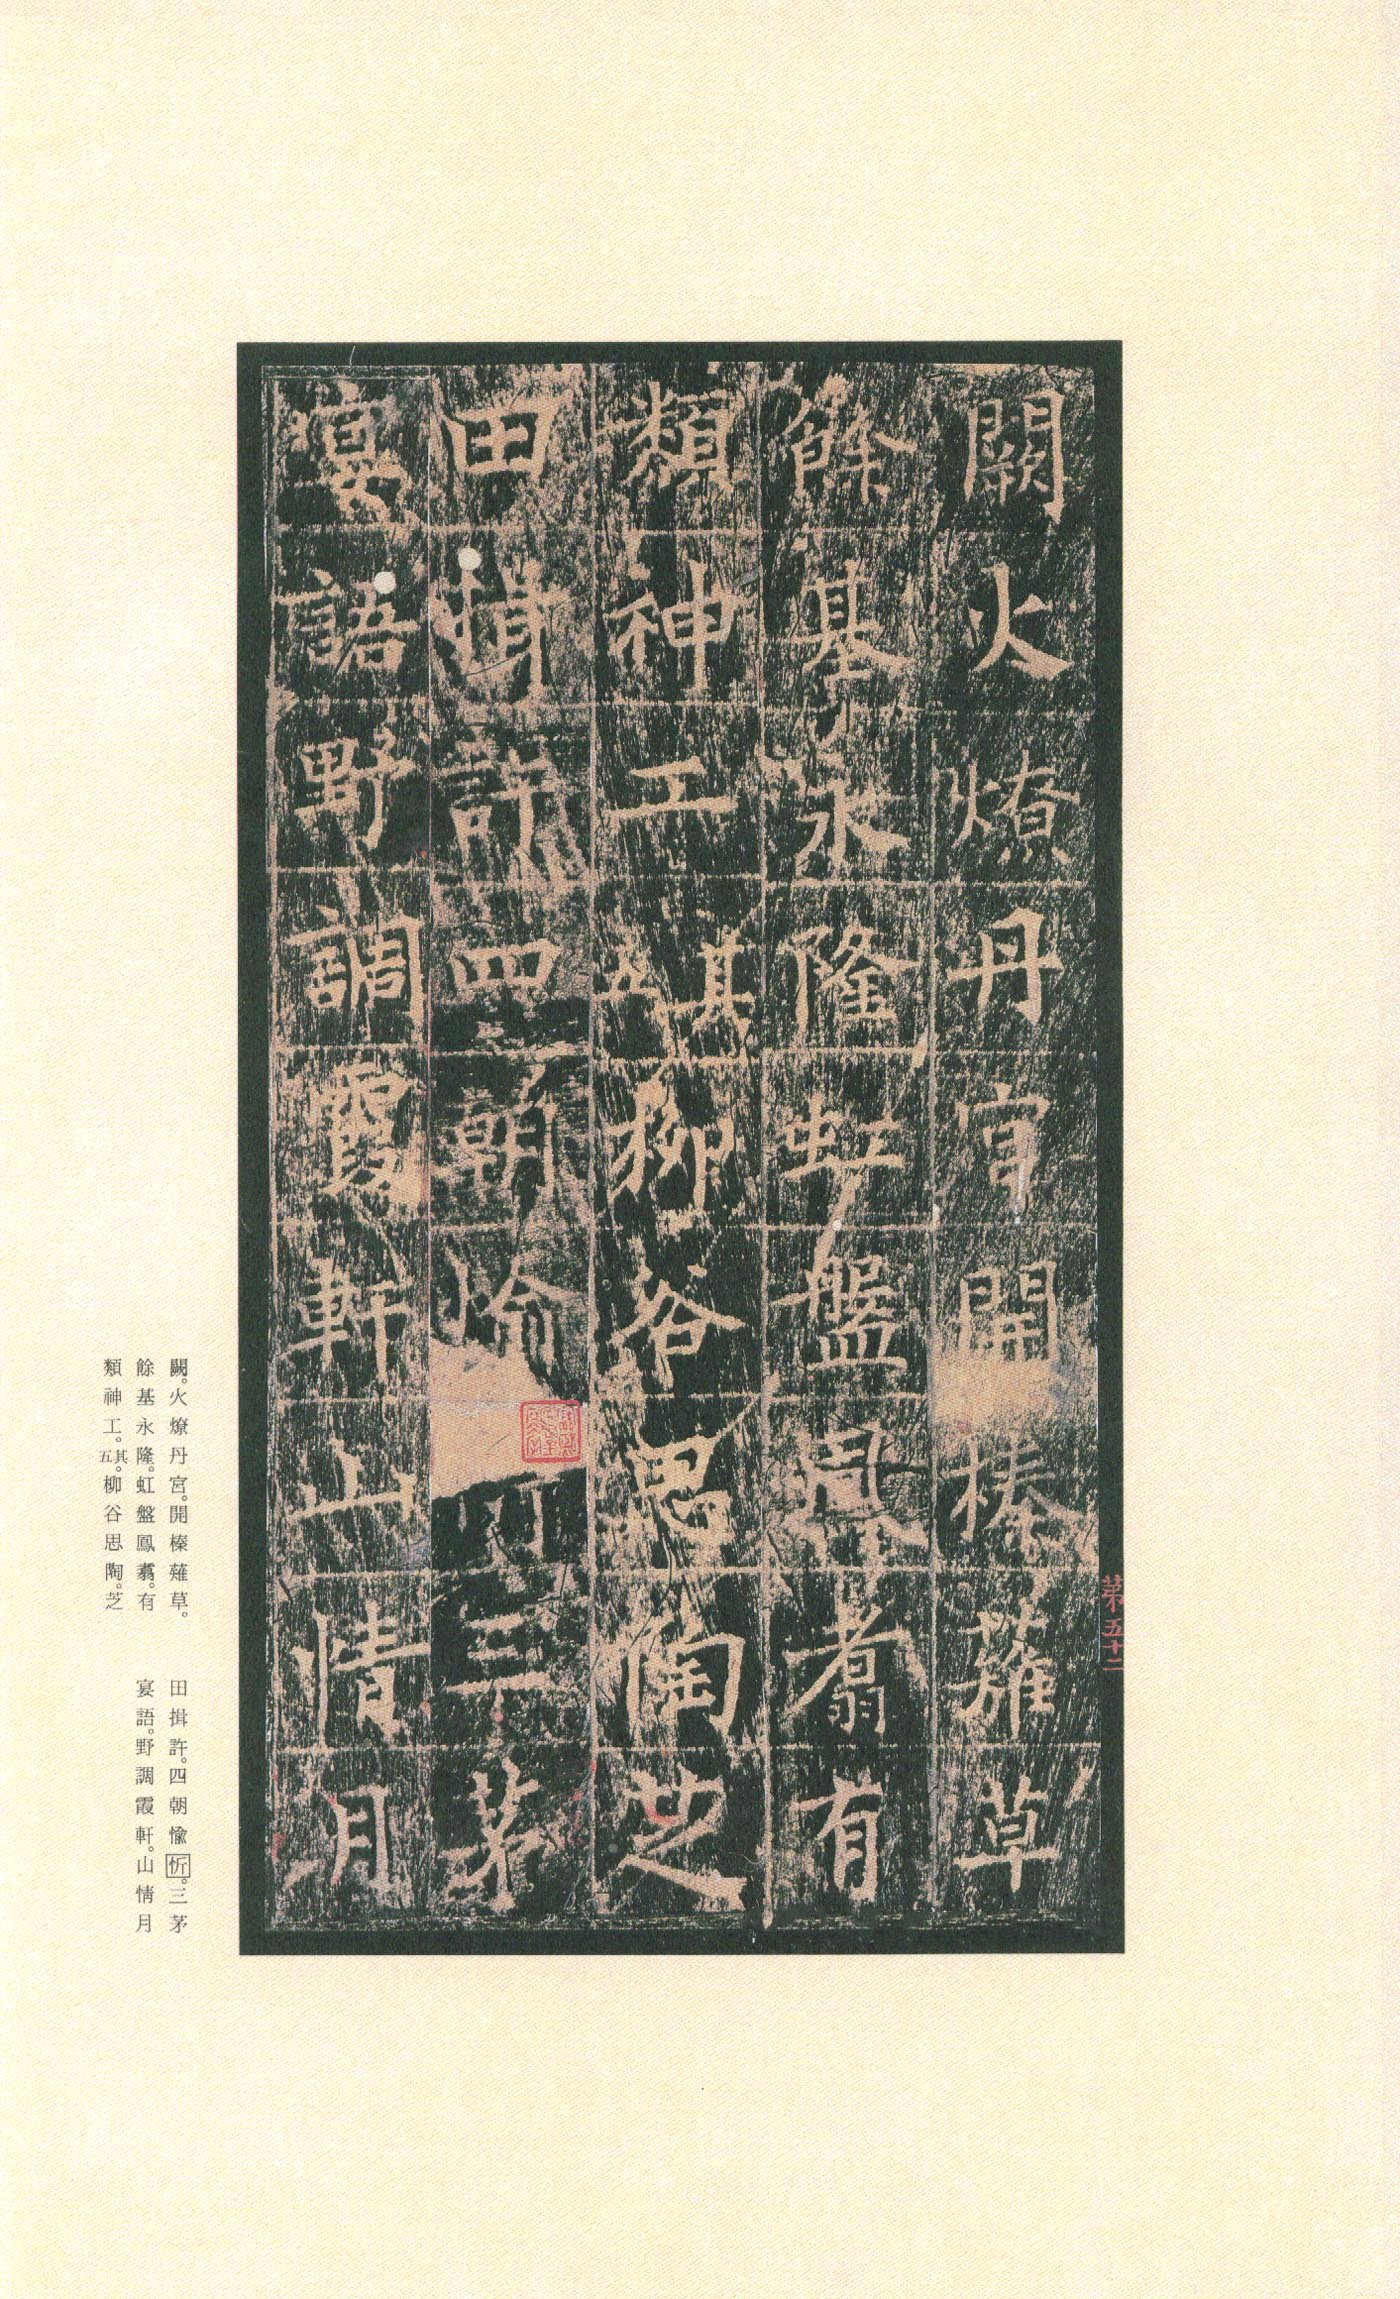 闕火燎丹宮開榛薙草
餘基永隆虹盤鳳翥有
類神工其五柳谷思陶芝
田揖許四朝愉三茅
宴語野調霞軒山情月
第五十二
闕。火燎丹宮。開榛薙草。
餘基永隆。虹盤鳳翥。有
類神工。其五。柳谷思陶。芝
田揖許。四朝愉忻。三茅
宴語。野調霞軒。山情月